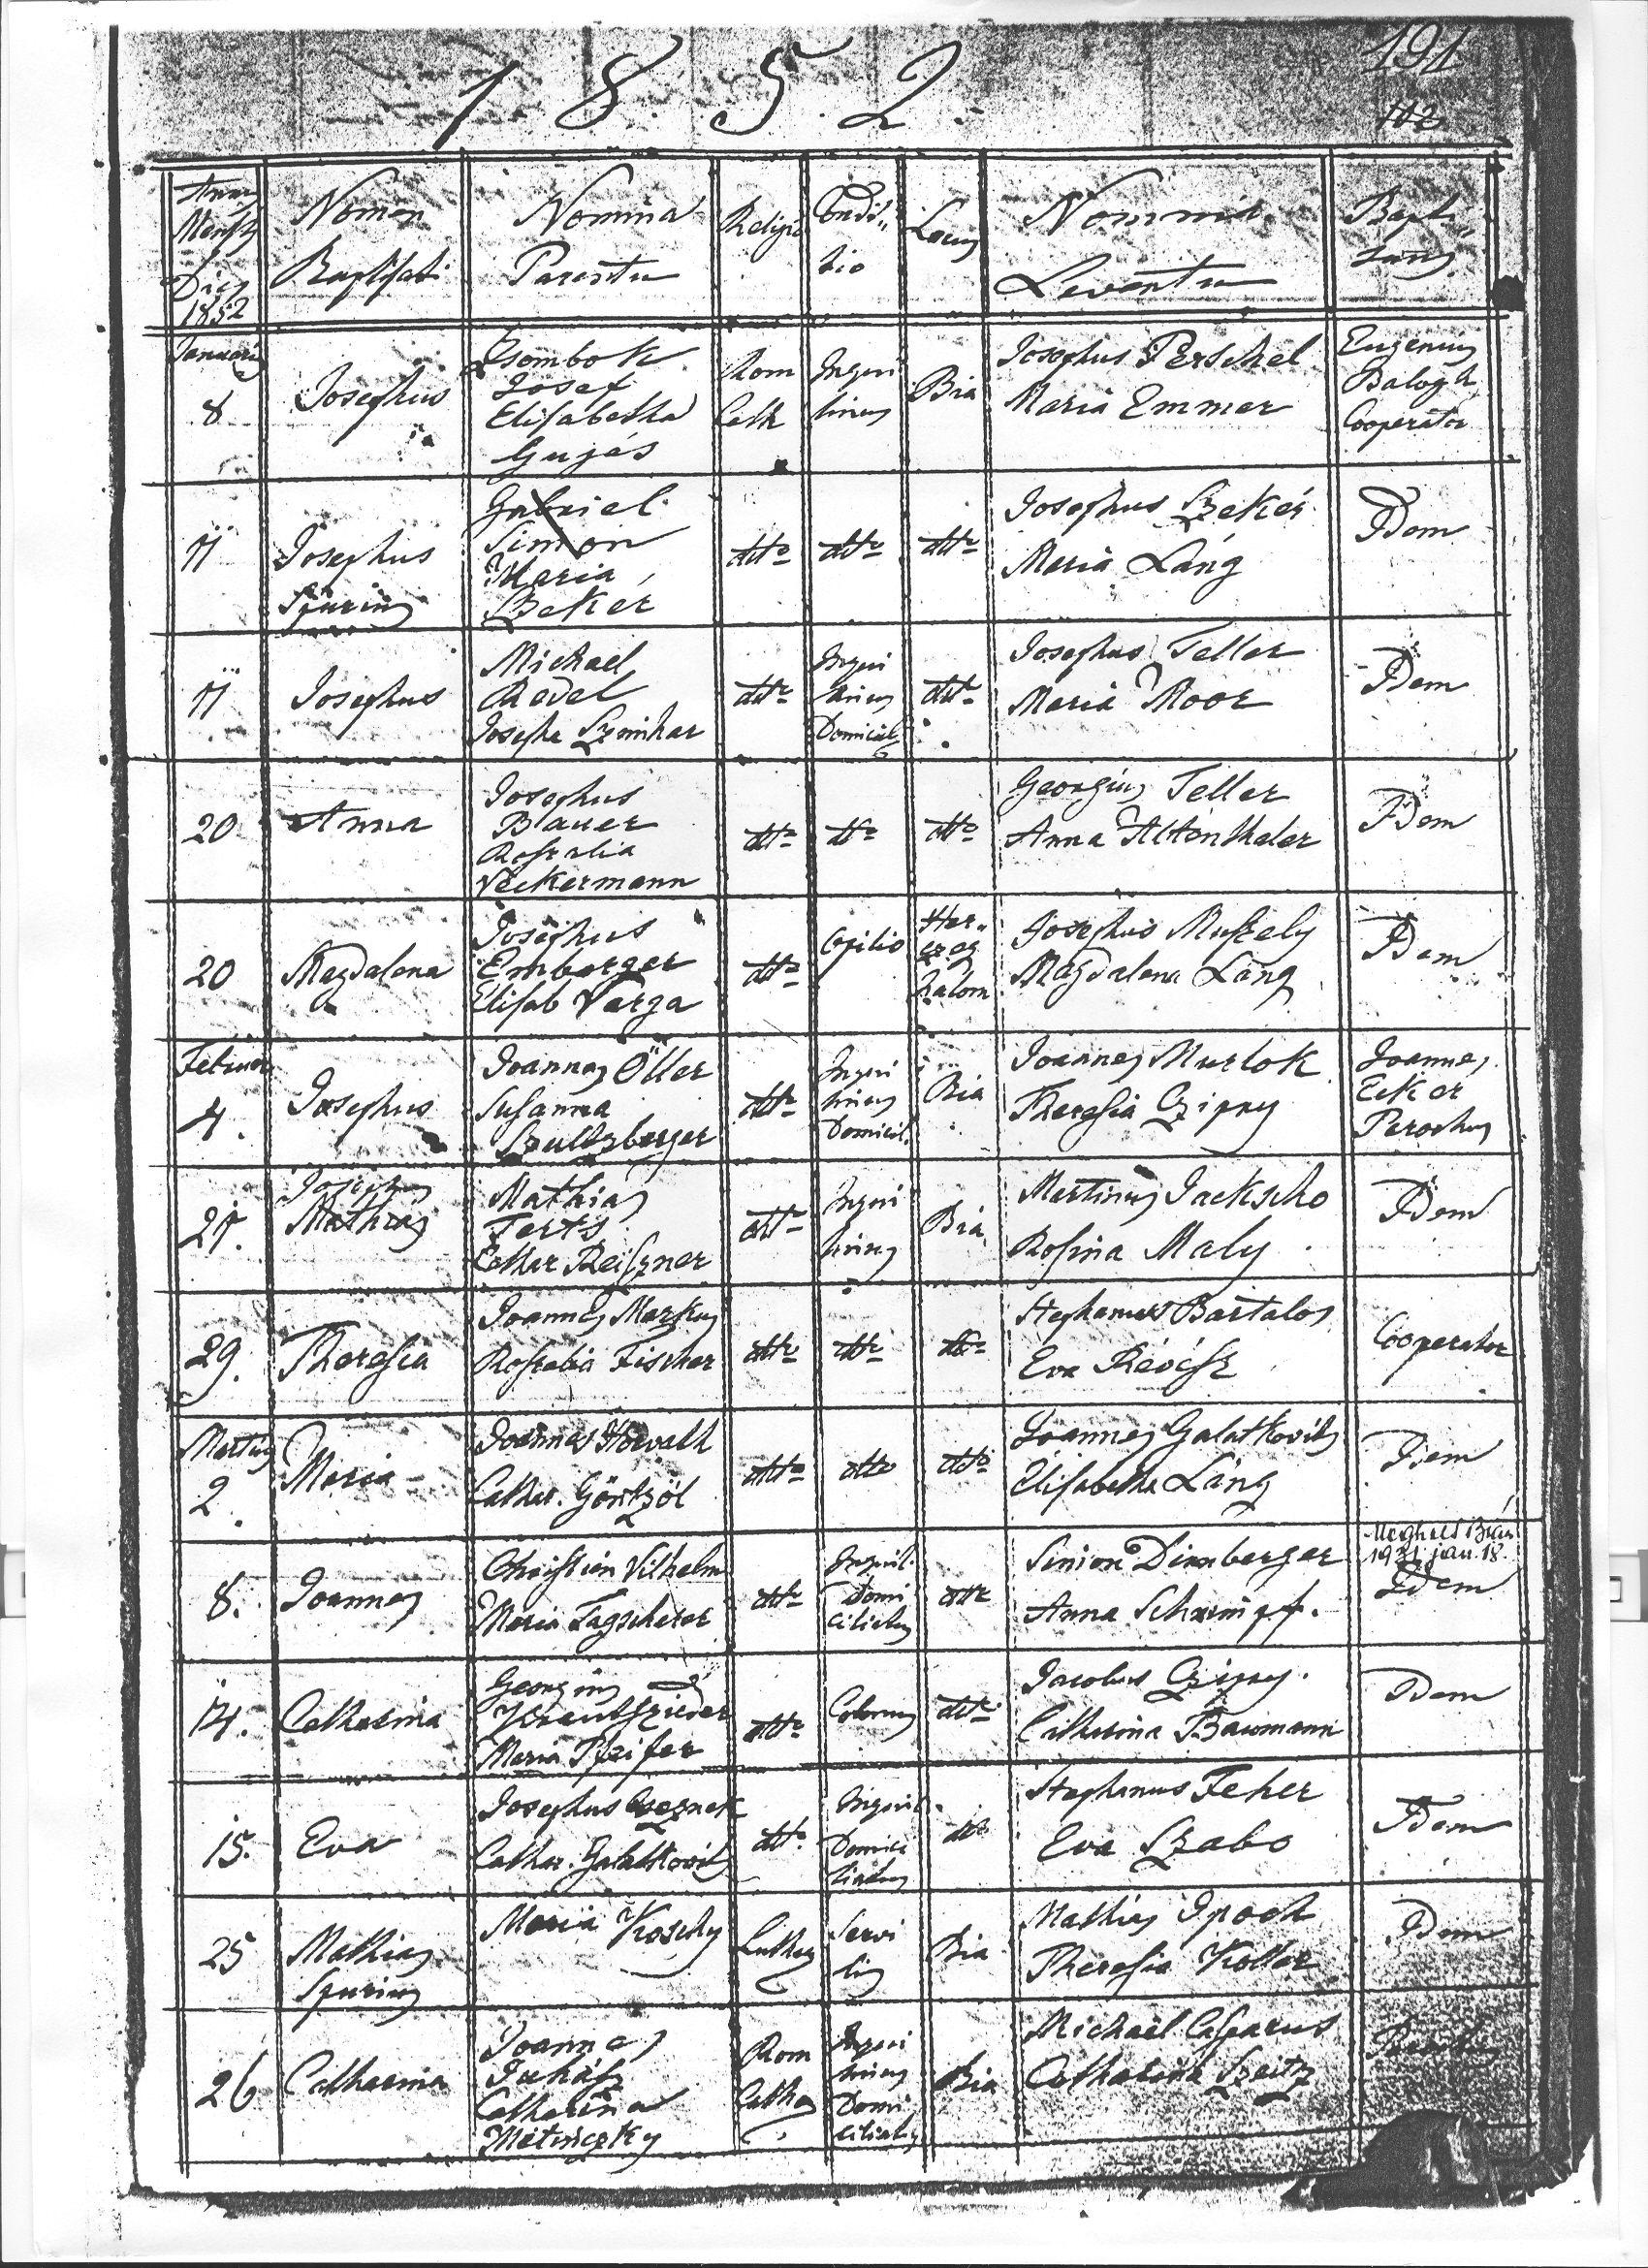 191
1 8 5 2.
102
Annus
Mensis
Dies
1852
Nomen
Baptisati
Nomina
Parentu
Religio
Condi„
tio
Locus
Nomina
Levantu
Bapti„
zans
Januarius
8
Josephus
Zsombok
Josef
Elisabetha
Gujás
Rom
Cath
Inqui
linus
Bia
Josephus Perschel
Maria Emmer
Eugenius
Balogh
Cooperator
11
Josephus
Spurius
Gabriel
Simon
Maria
Szekér
dtto
dtto
dtto
Josephus Szekér
Maria Láng
Idem
11
Josephus
Michael
Redel
Josepha Szminkar
dtto
Inqui
linus
Domicil
dtto
Josephus Teller
Maria Moor
Idem
20
Anna
Josephus
Blauer
Rosalia
Veckermann
dtto
dtto
dtto
Georgius Teller
Anna Altenthaler
Idem
20
Magdalena
Josephus
Emberger
Elisab Varga
dtto
Opilio
Her„
czeg
halom
Josephus Muszely
Magdalena Láng
Idem
Februar
4.
Josephus
Joannes Öller
Susanna
Szultzberger
dtto
Inqui
linus
Domicil.
Bia
Joannes Murlok
Theresia Czipry
Joannes
Ecker
Parochus
27.
Josephus
Mathias
Mathias
Ferts
Esther Reiszner
dtto
Inqui
linus
Bia
Martinus Jackscho
Rosina Maly
Idem
29.
Theresia
Joannes Markus
Rosalia Fischer
dtto
dtto
dtto
Stephanus Bartalos
Eva Révész
Cooperator
Martius
2.
Maria
Joannes Horvath
Cathar. Göntzöl
dtto
dtto
dtto
Joannes Galatkovits
Elisabetha Láng
Idem
8.
Joannes
Christian Vilhelm
Maria Tagscherer
dtto
Inquil.
Domi
ciliatus
dtto
Simon Dirnberger
Anna Schrimpf.
Meghalt Bián
1931. jan. 18.
Idem
14.
Catharina
Georgius
Krautszieder
Maria Pfeifer
dtto
Colonus
dtto
Jacobus Czipry.
Catharina Baumann
Idem
15.
Eva
Josephus Cseznek
Cathar. Galatkovits
dtto.
Inquil.
Domici
liatus
dtto
Stephanus Feher
Eva Szabo
Idem
25
Mathias
Spurius
Maria Koschy
Luther
Servi
lis
Bia
Mathias Ipoch
Theresia Koller
Idem
26
Catharina
Joannes
Juhász
Catharina
Metinczky
Rom
Catho
Inqui
linus
Domi
ciliatus
Bia
Michael Casparus
Catharina Szeitz
Parochus